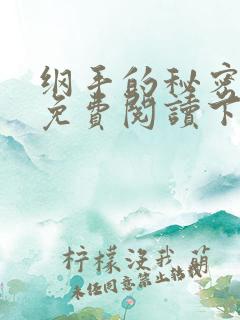 纲手的秘密
免費閱讀下
柠檬没我萌
未经同意禁止转载